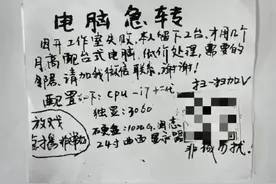 电脑急转
因开工作室失败,本人留下2台,才用几个
月高配台式电脑,低价处理,需要的
邻居,请加我微信联系,谢谢!
配置如下:CPU-i7十二代
扫一扫加V
独显:3060
放戏
固态
24寸曲面显示器
非诚勿扰!